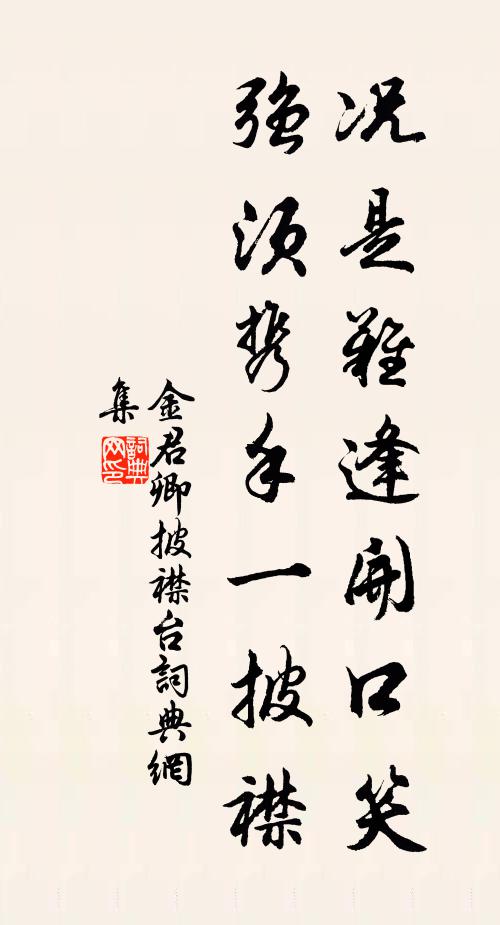 况是難逢開口笑
強須携手一披襟
金君卿披襟台詞典網
集
詞典
网印